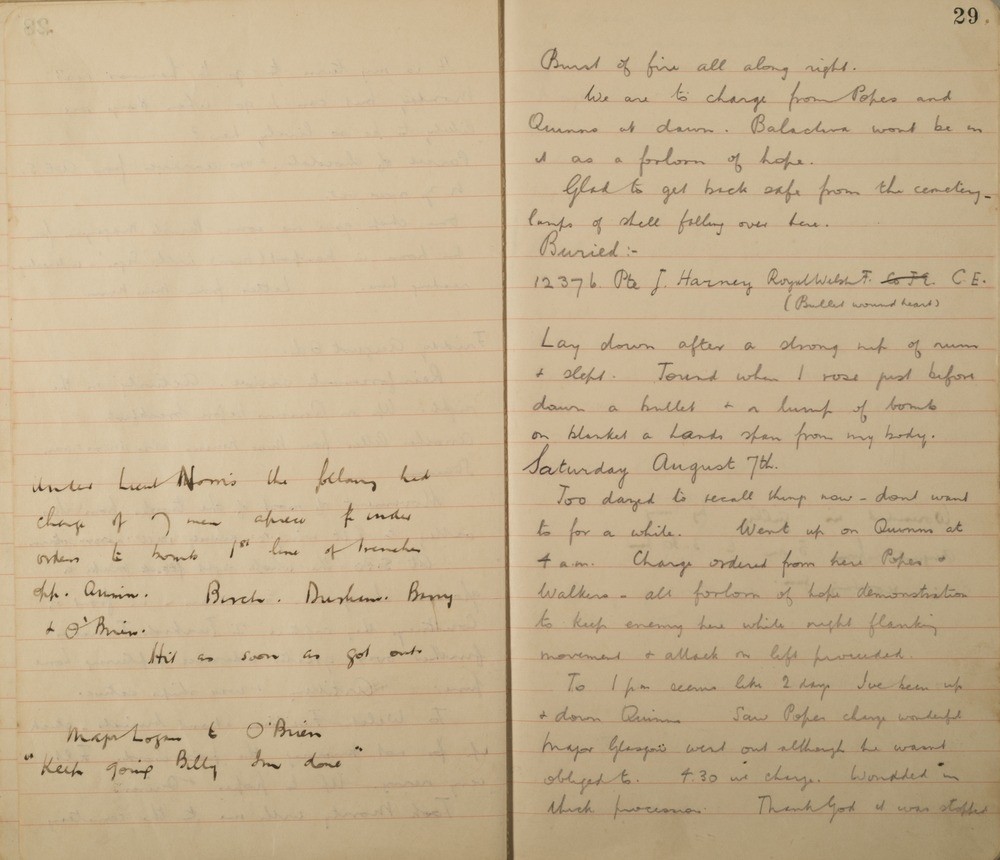 under Lieut Norris the following had
charge of 7 men apiece & under
orders to bomb 1st line of trenches
opp. Quinn. Birch. Durham. Barry
& O'Brien.
Hit as soon as got out
Major Logan to O'Brien
"Keep going Billy I'm done"
29.
Burst of fire all along right.
We are to charge from Popes and
Quinns at dawn. Balaclava wont be in
it as a forlorn of hope.
Glad to get back safe from the cemetery -
lumps of shell falling over here.
Buried :-
12376. Pte J. Harney Royal Welsh F. C.E.
(Bullet wound heart)
Lay down after a strong nip of rum
& slept. Found when I rose just before
dawn a bullet & a lump of bomb
on blanket a hands span from my body.
Saturday August 7th.
Too dazed to recall things now - dont want
to for a while. Went up on Quinns at
4 a.m. Charge ordered from here Popes &
Walkers - all forlorn of hope demonstration
to keep enemy here while right flanking
movement & attack on left proceeded.
To 1 pm seems like 2 days I've been up
& down Quinns Saw Popes charge wonderful
Major Glasgow went out although he wasnt
obliged to. 4.30 we charge. Wounded in
thick procession. Thank God it was stopped